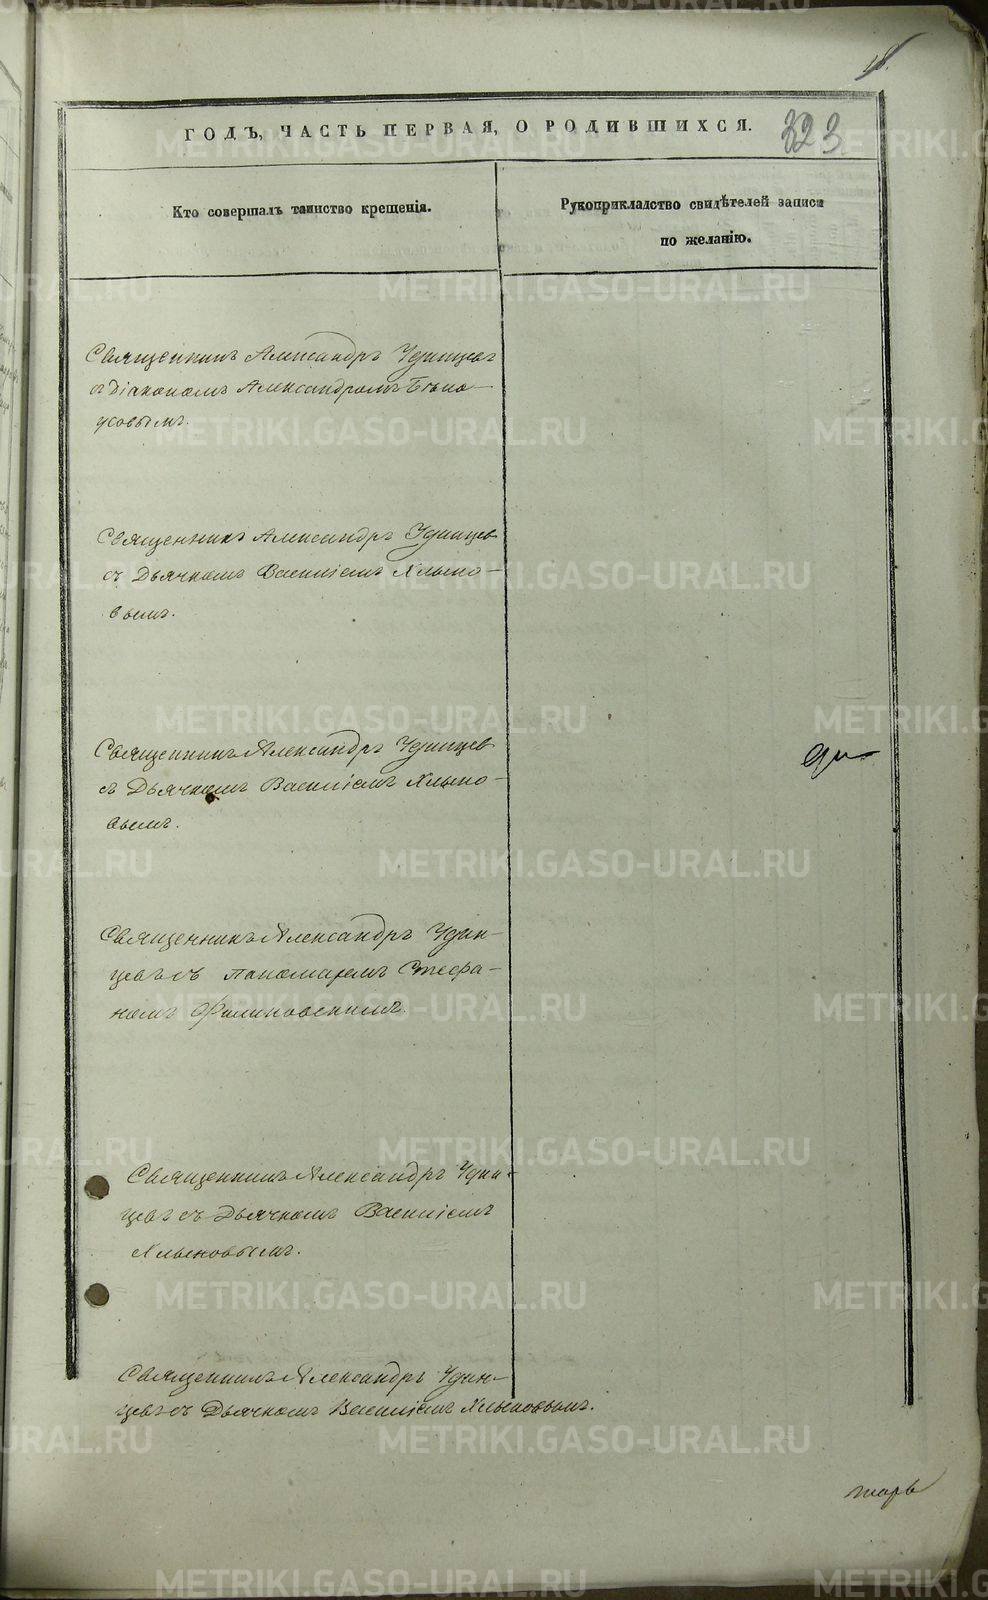 18.
ГОДЪ, ЧАСТЬ ПЕРВАЯ, О РОДИВШИХСЯ.
323
Кто совершалъ таинство крещенія.
Рукоприкладство свидѣтелей записи
по желанію.
Священникъ Александръ Удинцевъ
съ Діакономъ Александромъ Бѣло-
усовымъ.
Священникъ Александръ Удинцев
съ Дьячкомъ Василіемъ Хлыно-
вымъ.
Священникъ Александръ Удинцев
съ Дьячкомъ Василіемъ Хлыно-
вымъ.
Священникъ Александръ Удин-
цевъ съ пономаремъ Стефа-
номъ
Священникъ Александръ Удин-
цевъ съ Дьячкомъ Василіемъ
Хлыновымъ.
Священникъ Александръ Удин-
цевъ съ Дьячкомъ Василіемъ Хлыновымъ.
тарь
METRIKI.GASO-URAL.RU